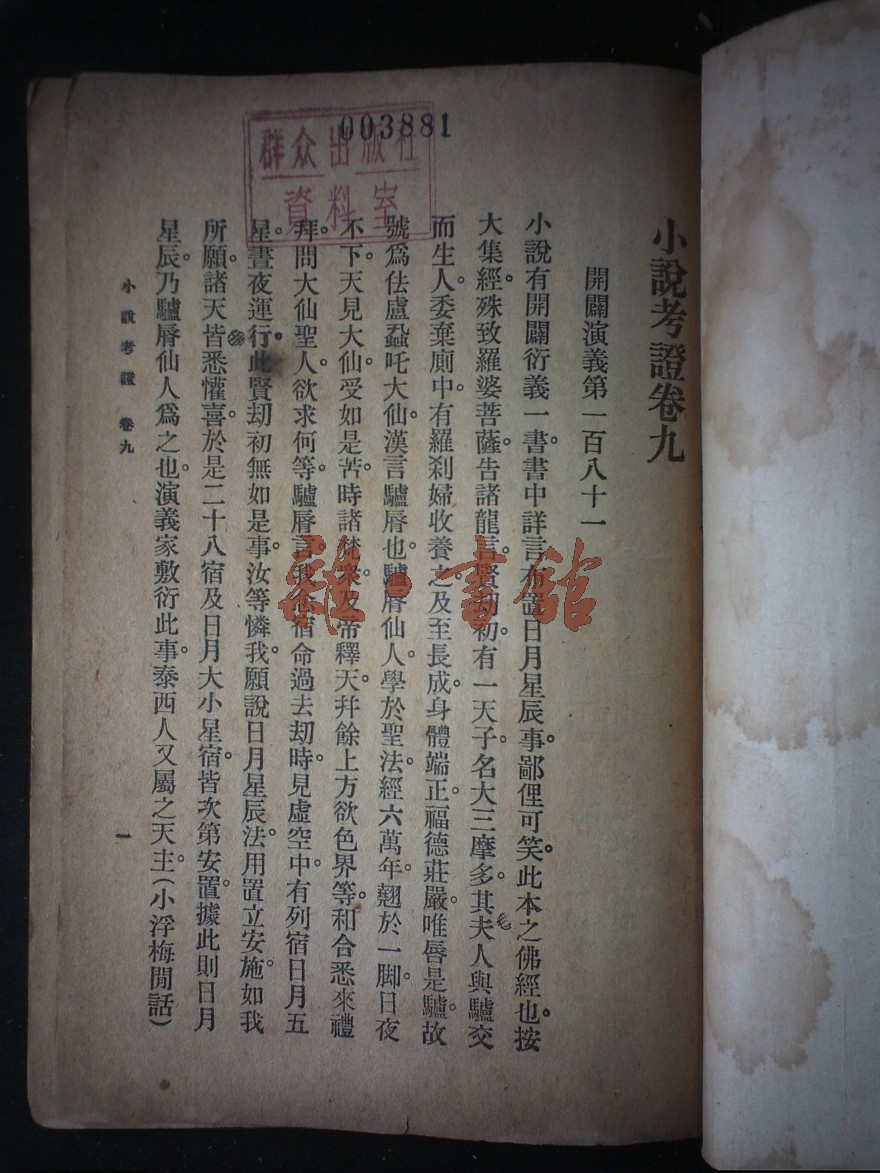 003881
群众出版社
資料室
小說考證卷九
開闢演義第一百八十一
小說有開闢衍義一書。書中詳言布置日月星辰事。鄙俚可笑。此本之佛經也。按
大集經。殊致羅婆菩薩告諸龍言。賢劫初。有一天子。名大三摩多。其夫人與驢交
而生人。委棄廁中。有羅刹婦收養之。及至長成。身體端正。福德莊嚴。唯唇是驢。故
號爲佉盧蝨吒大仙。漢言驢脣也。驢脣仙人。學於聖法。經六萬年。翹於一脚。日夜
不下。天見大仙受如是苦。時諸梵衆及帝釋天。幷餘上方欲色界等。和合悉來禮
拜。問大仙聖人。欲求何等。驢脣言。我念宿命過去劫時。見虛空中。有列宿日月五
星。晝夜運行。此賢劫初無如是事。汝等憐我。願說日月星辰法。用置立安施。如我
所願。諸天皆悉懽喜。於是二十八宿及日月大小星宿。皆次第安置。據此則日月
星辰。乃驢脣仙人爲之也。演義家敷衍此事。泰西人又屬之天主。(小浮梅閒話)
小說考證 卷九
一
雜·書館